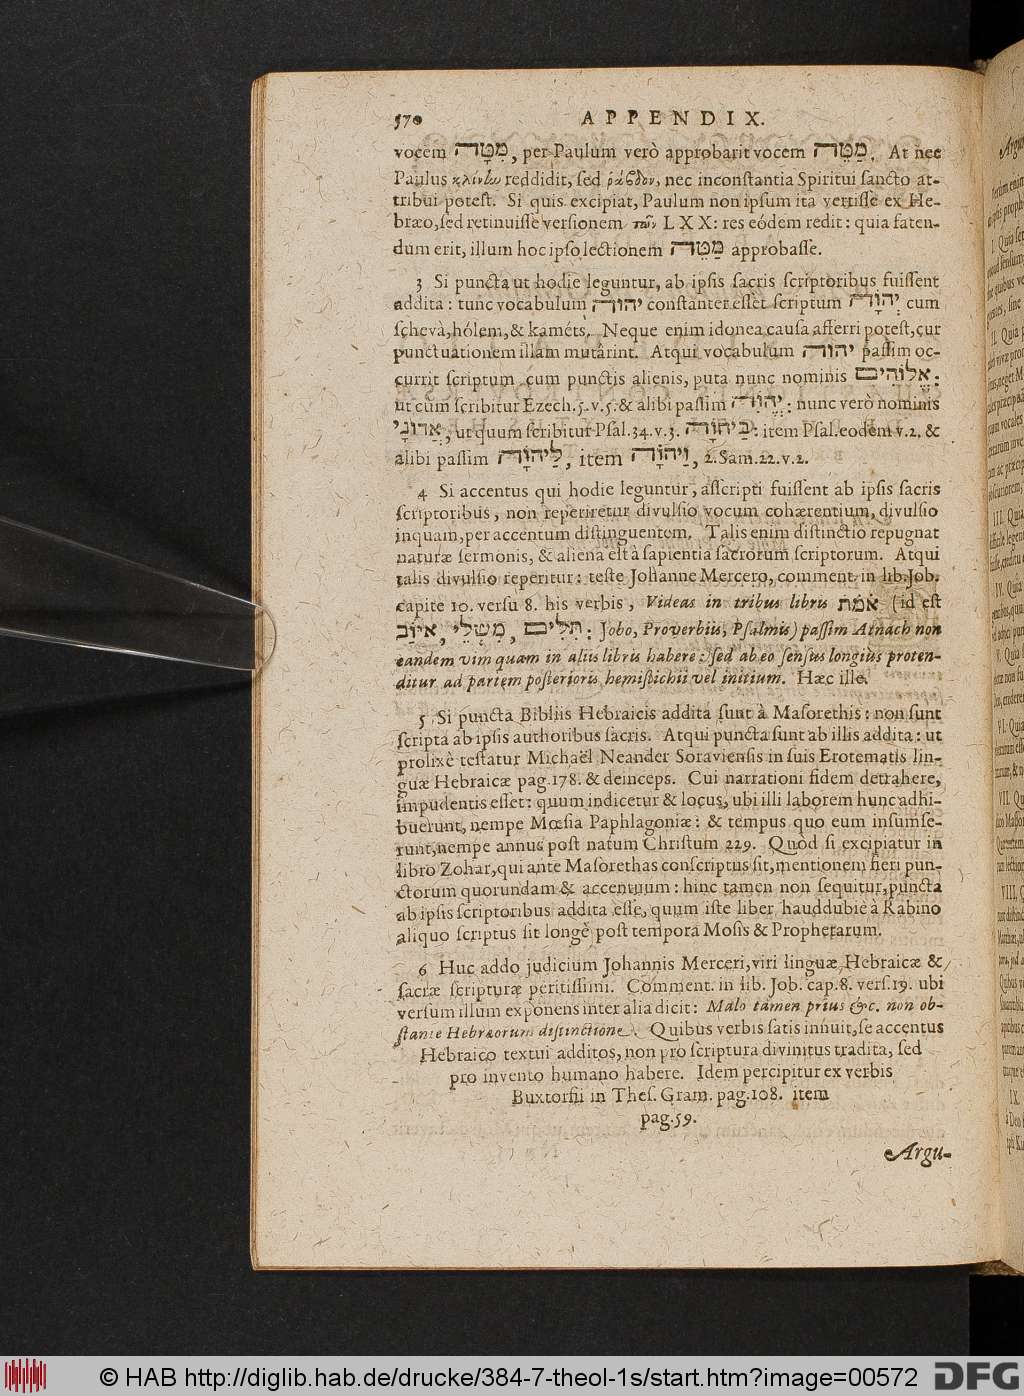 570 APPENDIX.
vocem מִטָּה, per Paulum verò approbarit vocem מַטֶּה. At nec
Paulus κλίνlω reddidit, sed ῥάβδον, nec inconstantia Spiritui sancto at-
tribui potest. Si quis excipiat, Paulum non ipsum ita vertisse ex He-
bræo, sed retinuisse versionem τῶν LXX: res eódem redit: quia faten-
dum erit, illum hoc ipso lectionem מַטֶּה approbasse.
3 Si puncta ut hodie leguntur, ab ipsis sacris scriptoribus fuissent
addita: tunc vocabulum יהוה constanter esset scriptum יְהוָֹה cum
schevà, hólem, & kaméts. Neque enim idonea causa afferri potest, cur
punctuationem illam mutârint. Atqui vocabulum יהוה passim oc-
currit scriptum cum punctis alienis, puta nunc nominis אֱלוֹהִים:
ut cum scribitur Ezech. 5. v. 5. & alibi passim יֱהוִֹה: nunc verò nominis
אֲדוֹנָי, ut quum scribitur Psal. 34. v. 3. בַּיהוָֹה: item Psal. eodem v. 2. &
alibi passim לַיהוָֹה, item וַיהוָֹה, 2. Sam. 22. v. 2.
4 Si accentus qui hodie leguntur, asscripti fuissent ab ipsis sacris
scriptoribus, non reperiretur divulsio vocum cohærentium, divulsio
inquam, per accentum distinguentem. Talis enim distinctio repugnat
naturæ sermonis, & aliena est à sapientia sacrorum scriptorum. Atqui
talis divulsio reperitur: teste Johanne Mercero, comment. in lib. Job.
capite 10. versu 8. his verbis, Videas in tribus libris אמת (id est
איוב, מִשְׁלֵי, תִּלִים: Jobo, Proverbiis, Psalmis) passim Atnach non
eandem vim quam in aliis libris habere: sed ab eo sensus longiùs proten-
ditur ad partem posterioris hemistichii vel initium. Hæc ille.
5 Si puncta Bibliis Hebraicis addita sunt à Masorethis: non sunt
scripta ab ipsis authoribus sacris. Atqui puncta sunt ab illis addita: ut
prolixè testatur Michaël Neander Soraviensis in suis Erotematis lin-
guæ Hebraicæ pag. 178. & deinceps. Cui narrationi fidem detrahere,
impudentis esset: quum indicetur & locus, ubi illi laborem hunc adhi-
buerunt, nempe Mœsia Paphlagoniæ: & tempus quo eum insumse-
runt, nempe annus post natum Christum 229. Quòd si excipiatur in
libro Zohar, qui ante Masorethas conscriptus sit, mentionem fieri pun-
ctorum quorundam & accentuum: hinc tamen non sequitur, puncta
ab ipsis scriptoribus addita esse, quum iste liber hauddubiè à Rabino
aliquo scriptus sit longè post tempora Mosis & Prophetarum.
6 Huc addo judicium Johannis Merceri, viri linguæ Hebraicæ &
sacræ scripturæ peritissimi. Comment. in lib. Job. cap. 8. vers. 19. ubi
versum illum exponens inter alia dicit: Malo tamen prius &c. non ob-
stante Hebræorum distinctione. Quibus verbis satis innuit, se accentus
Hebraico textui additos, non pro scriptura divinitus tradita, sed
pro invento humano habere. Idem percipitur ex verbis
Buxtorfii in Thes. Gram. pag. 108. item
pag. 59.
Argu-
© HAB http://diglib.hab.de/drucke/384-7-theol-1s/start.htm?image=00572 DFG